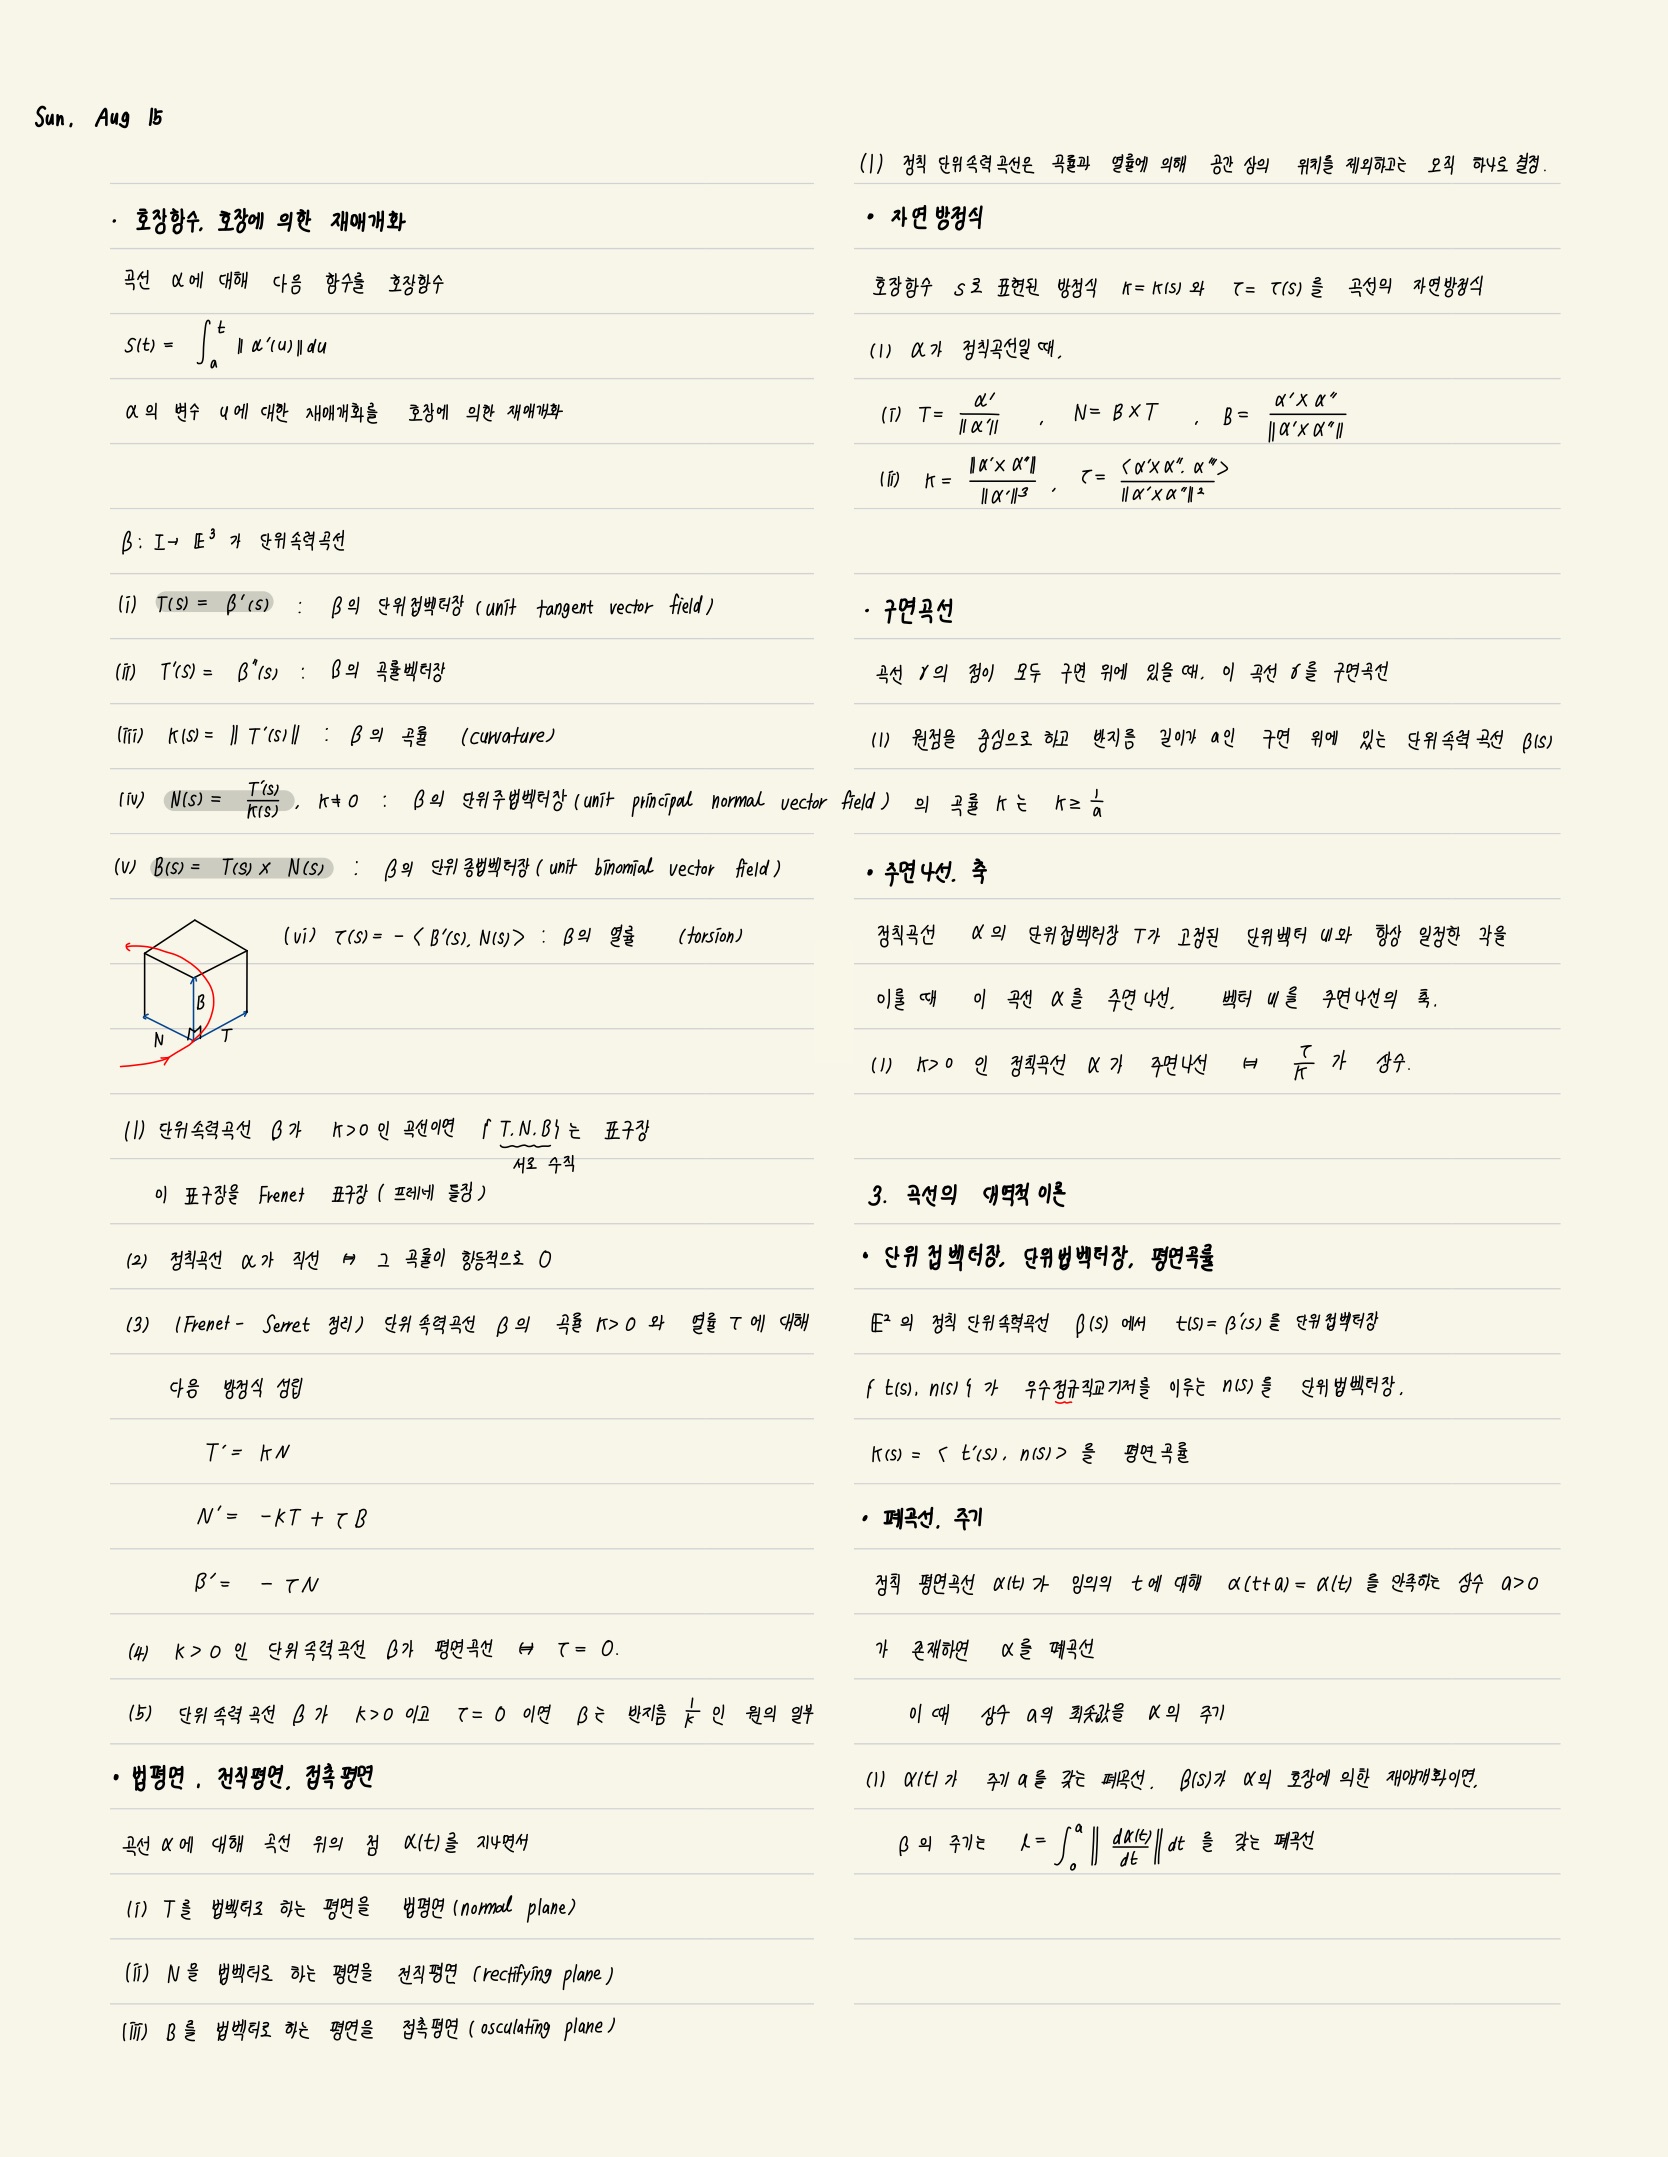 Sun. Aug 15
· 호장함수, 호장에 의한 재매개화
곡선 α에 대해 다음 함수를 호장함수
S(t) = ∫_a^t ‖α′(u)‖du
α의 변수 u에 대한 재매개화를 호장에 의한 재매개화
β: I→ E³ 가 단위속력곡선
(i) T(s) = β′(s) : β의 단위접벡터장 (unit tangent vector field)
(ii) T′(s) = β″(s) : β의 곡률벡터장
(iii) K(s) = ‖T′(s)‖ : β의 곡률 (curvature)
(iv) N(s) = T′(s)/K(s), K≠0 : β의 단위주법벡터장 (unit principal normal vector field)
(v) B(s) = T(s) × N(s) : β의 단위종법벡터장 (unit binomial vector field)
(vi) τ(s) = - < B′(s), N(s) > : β의 열률 (torsion)
B
N T
(1) 단위속력곡선 β가 K>0 인 곡선이면 { T, N, B }는 표구장
서로 수직
이 표구장을 Frenet 표구장 ( 프레네 틀장 )
(2) 정칙곡선 α가 직선 ⇔ 그 곡률이 항등적으로 0
(3) (Frenet - Serret 정리) 단위속력곡선 β의 곡률 K>0 와 열률 τ에 대해
다음 방정식 성립
T′ = KN
N′ = -KT + τB
B′ = - τN
(4) K > 0 인 단위속력곡선 β가 평면곡선 ⇔ τ = 0.
(5) 단위속력곡선 β가 K>0 이고 τ = 0 이면 β는 반지름 1/K 인 원의 일부
· 법평면, 전직평면, 접촉평면
곡선 α에 대해 곡선 위의 점 α(t)를 지나면서
(i) T를 법벡터로 하는 평면을 법평면 (normal plane)
(ii) N을 법벡터로 하는 평면을 전직평면 (rectifying plane)
(iii) B를 법벡터로 하는 평면을 접촉평면 (osculating plane)
(1) 정칙 단위속력곡선은 곡률과 열률에 의해 공간 상의 위치를 제외하고는 오직 하나로 결정.
· 자연방정식
호장함수 s로 표현된 방정식 K = K(s) 와 τ = τ(s)를 곡선의 자연방정식
(1) α가 정칙곡선일 때,
(i) T = α′/‖α′‖ , N = B×T , B = α′×α″/‖α′×α″‖
(ii) K = ‖α′×α″‖/‖α′‖³ , τ = <α′×α″, α‴>/‖α′×α″‖²
· 구면곡선
곡선 γ의 점이 모두 구면 위에 있을 때, 이 곡선 γ를 구면곡선
(1) 원점을 중심으로 하고 반지름 길이가 a인 구면 위에 있는 단위속력곡선 β(s)
의 곡률 K는 K ≥ 1/a
· 주면나선, 축
정칙곡선 α의 단위접벡터장 T가 고정된 단위벡터 u와 항상 일정한 각을
이룰 때 이 곡선 α를 주면나선, 벡터 u를 주면나선의 축.
(1) K>0 인 정칙곡선 α가 주면나선 ⇔ τ/K 가 상수.
3. 곡선의 대역적 이론
· 단위접벡터장, 단위법벡터장, 평면곡률
E²의 정칙 단위속력곡선 β(s)에서 t(s) = β′(s)를 단위접벡터장
{ t(s), n(s) } 가 우수정규직교기저를 이루는 n(s)를 단위법벡터장.
K(s) = < t′(s), n(s) > 를 평면곡률
· 폐곡선, 주기
정칙 평면곡선 α(t)가 임의의 t에 대해 α(t+a) = α(t) 를 만족하는 상수 a>0
가 존재하면 α를 폐곡선
이 때 상수 a의 최솟값을 α의 주기
(1) α(t)가 주기 a를 갖는 폐곡선, β(s)가 α의 호장에 의한 재매개화이면,
β의 주기는 l = ∫_0^a ‖dα(t)/dt‖dt 를 갖는 폐곡선